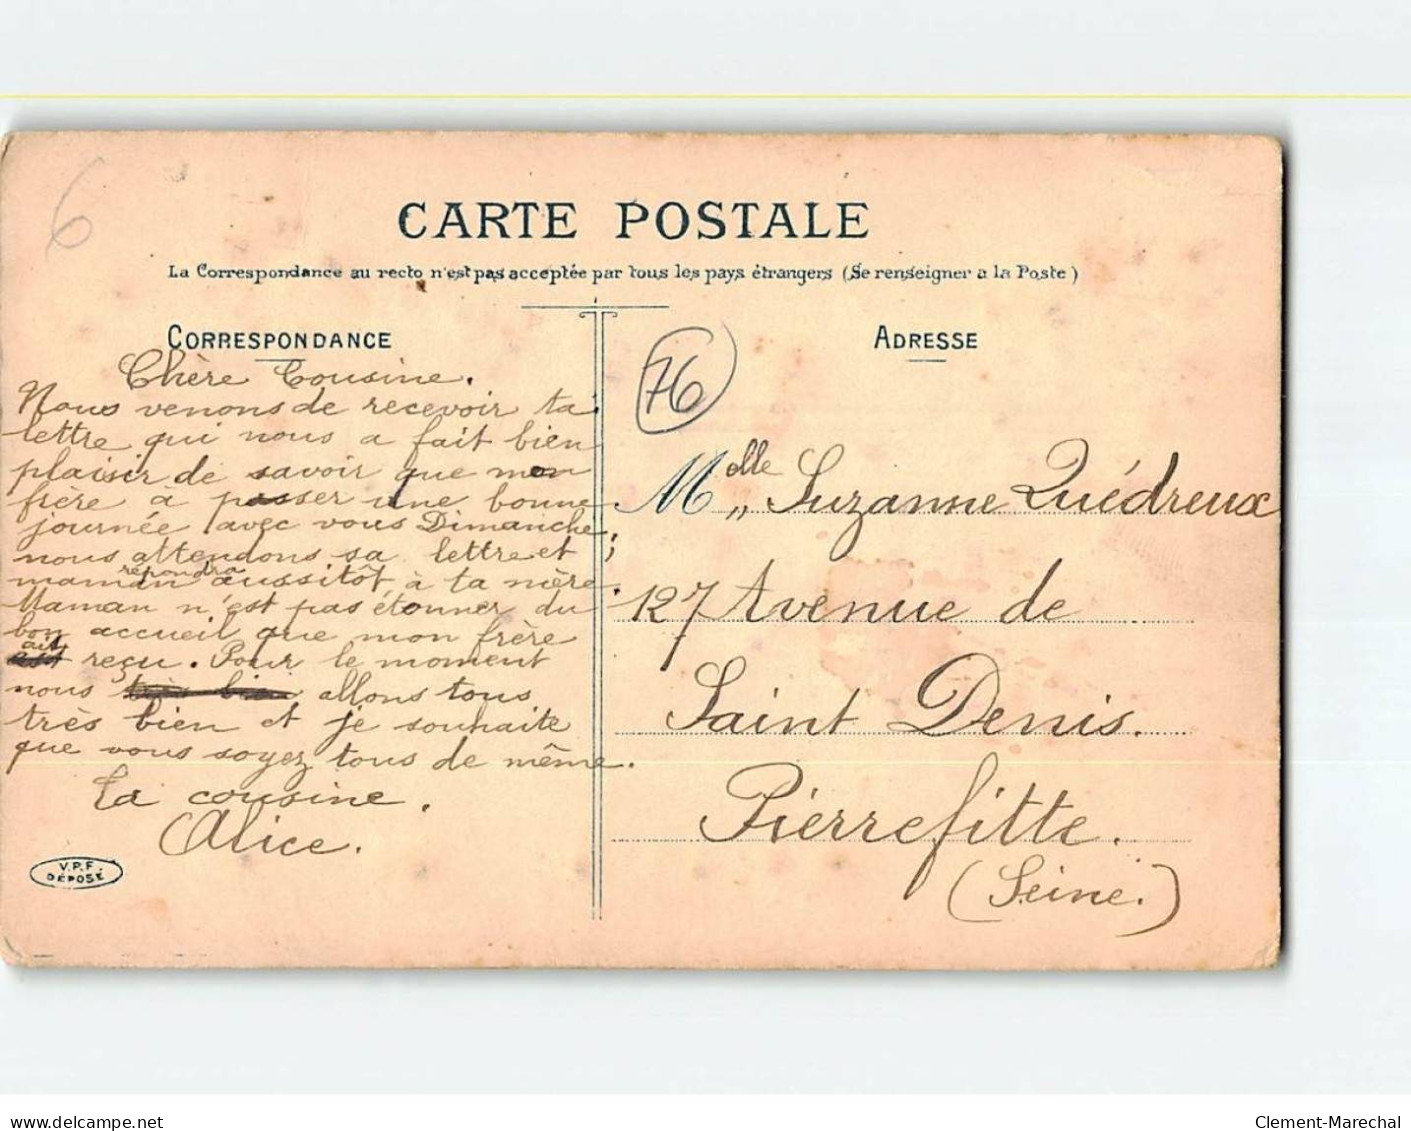 6
CARTE POSTALE
La Correspondance au recto n'est pas acceptée par tous les pays étrangers (Se renseigner a la Poste)
CORRESPONDANCE
Chère Cousine.
Nous venons de recevoir ta
lettre qui nous a fait bien
plaisir de savoir que mon
frère à passer une bonne
journée avec vous Dimanche,
nous attendons sa lettre et
maman répondra aussitôt à ta mère.
Maman n'est pas étonner du
bon accueil que mon frère
ait reçu. Pour le moment
nous très bien allons tous
très bien et je souhaite
que vous soyez tous de même.
Ta cousine.
Alice.
V.P.F.
DÉPOSÉ
ADRESSE
76
Melle Suzanne Quédreux
127 Avenue de
Saint Denis.
Pierrefitte.
(Seine.)
www.delcampe.net
Clement-Marechal